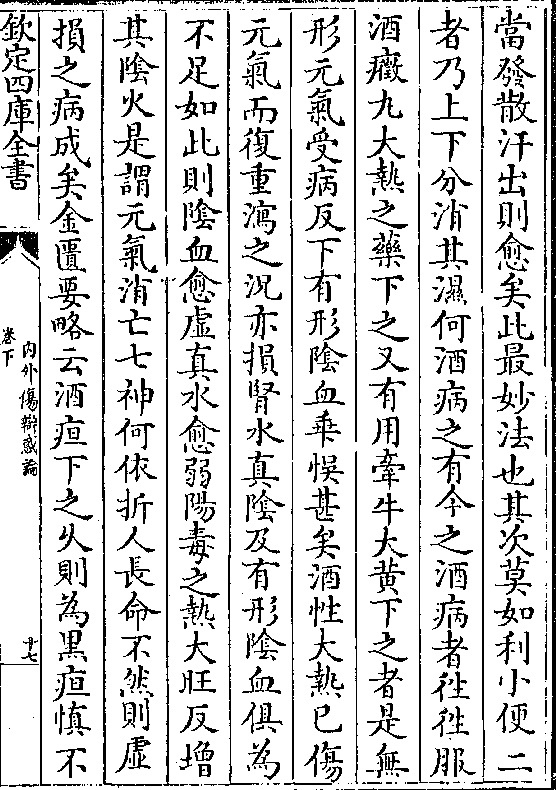 當發散汗出則愈矣此最妙法也其次莫如利小便二
者乃上下分消其濕何酒病之有今之酒病者徃徃服
酒癥丸大熱之藥下之又有用牽牛大黄下之者是無
形元氣受病反下有形隂血乖悮甚矣酒性大熱已傷
元氣而復重瀉之况亦損腎水真隂及有形隂血俱為
不足如此則隂血愈虚真水愈弱陽毒之熱大旺反增
其隂火是謂元氣消亡七神何依折人長命不然則虚
損之病成矣金匱要略云酒疸下之乆則為黒疸慎不
欽定四庫全書
内外傷辯惑論
卷下
十七